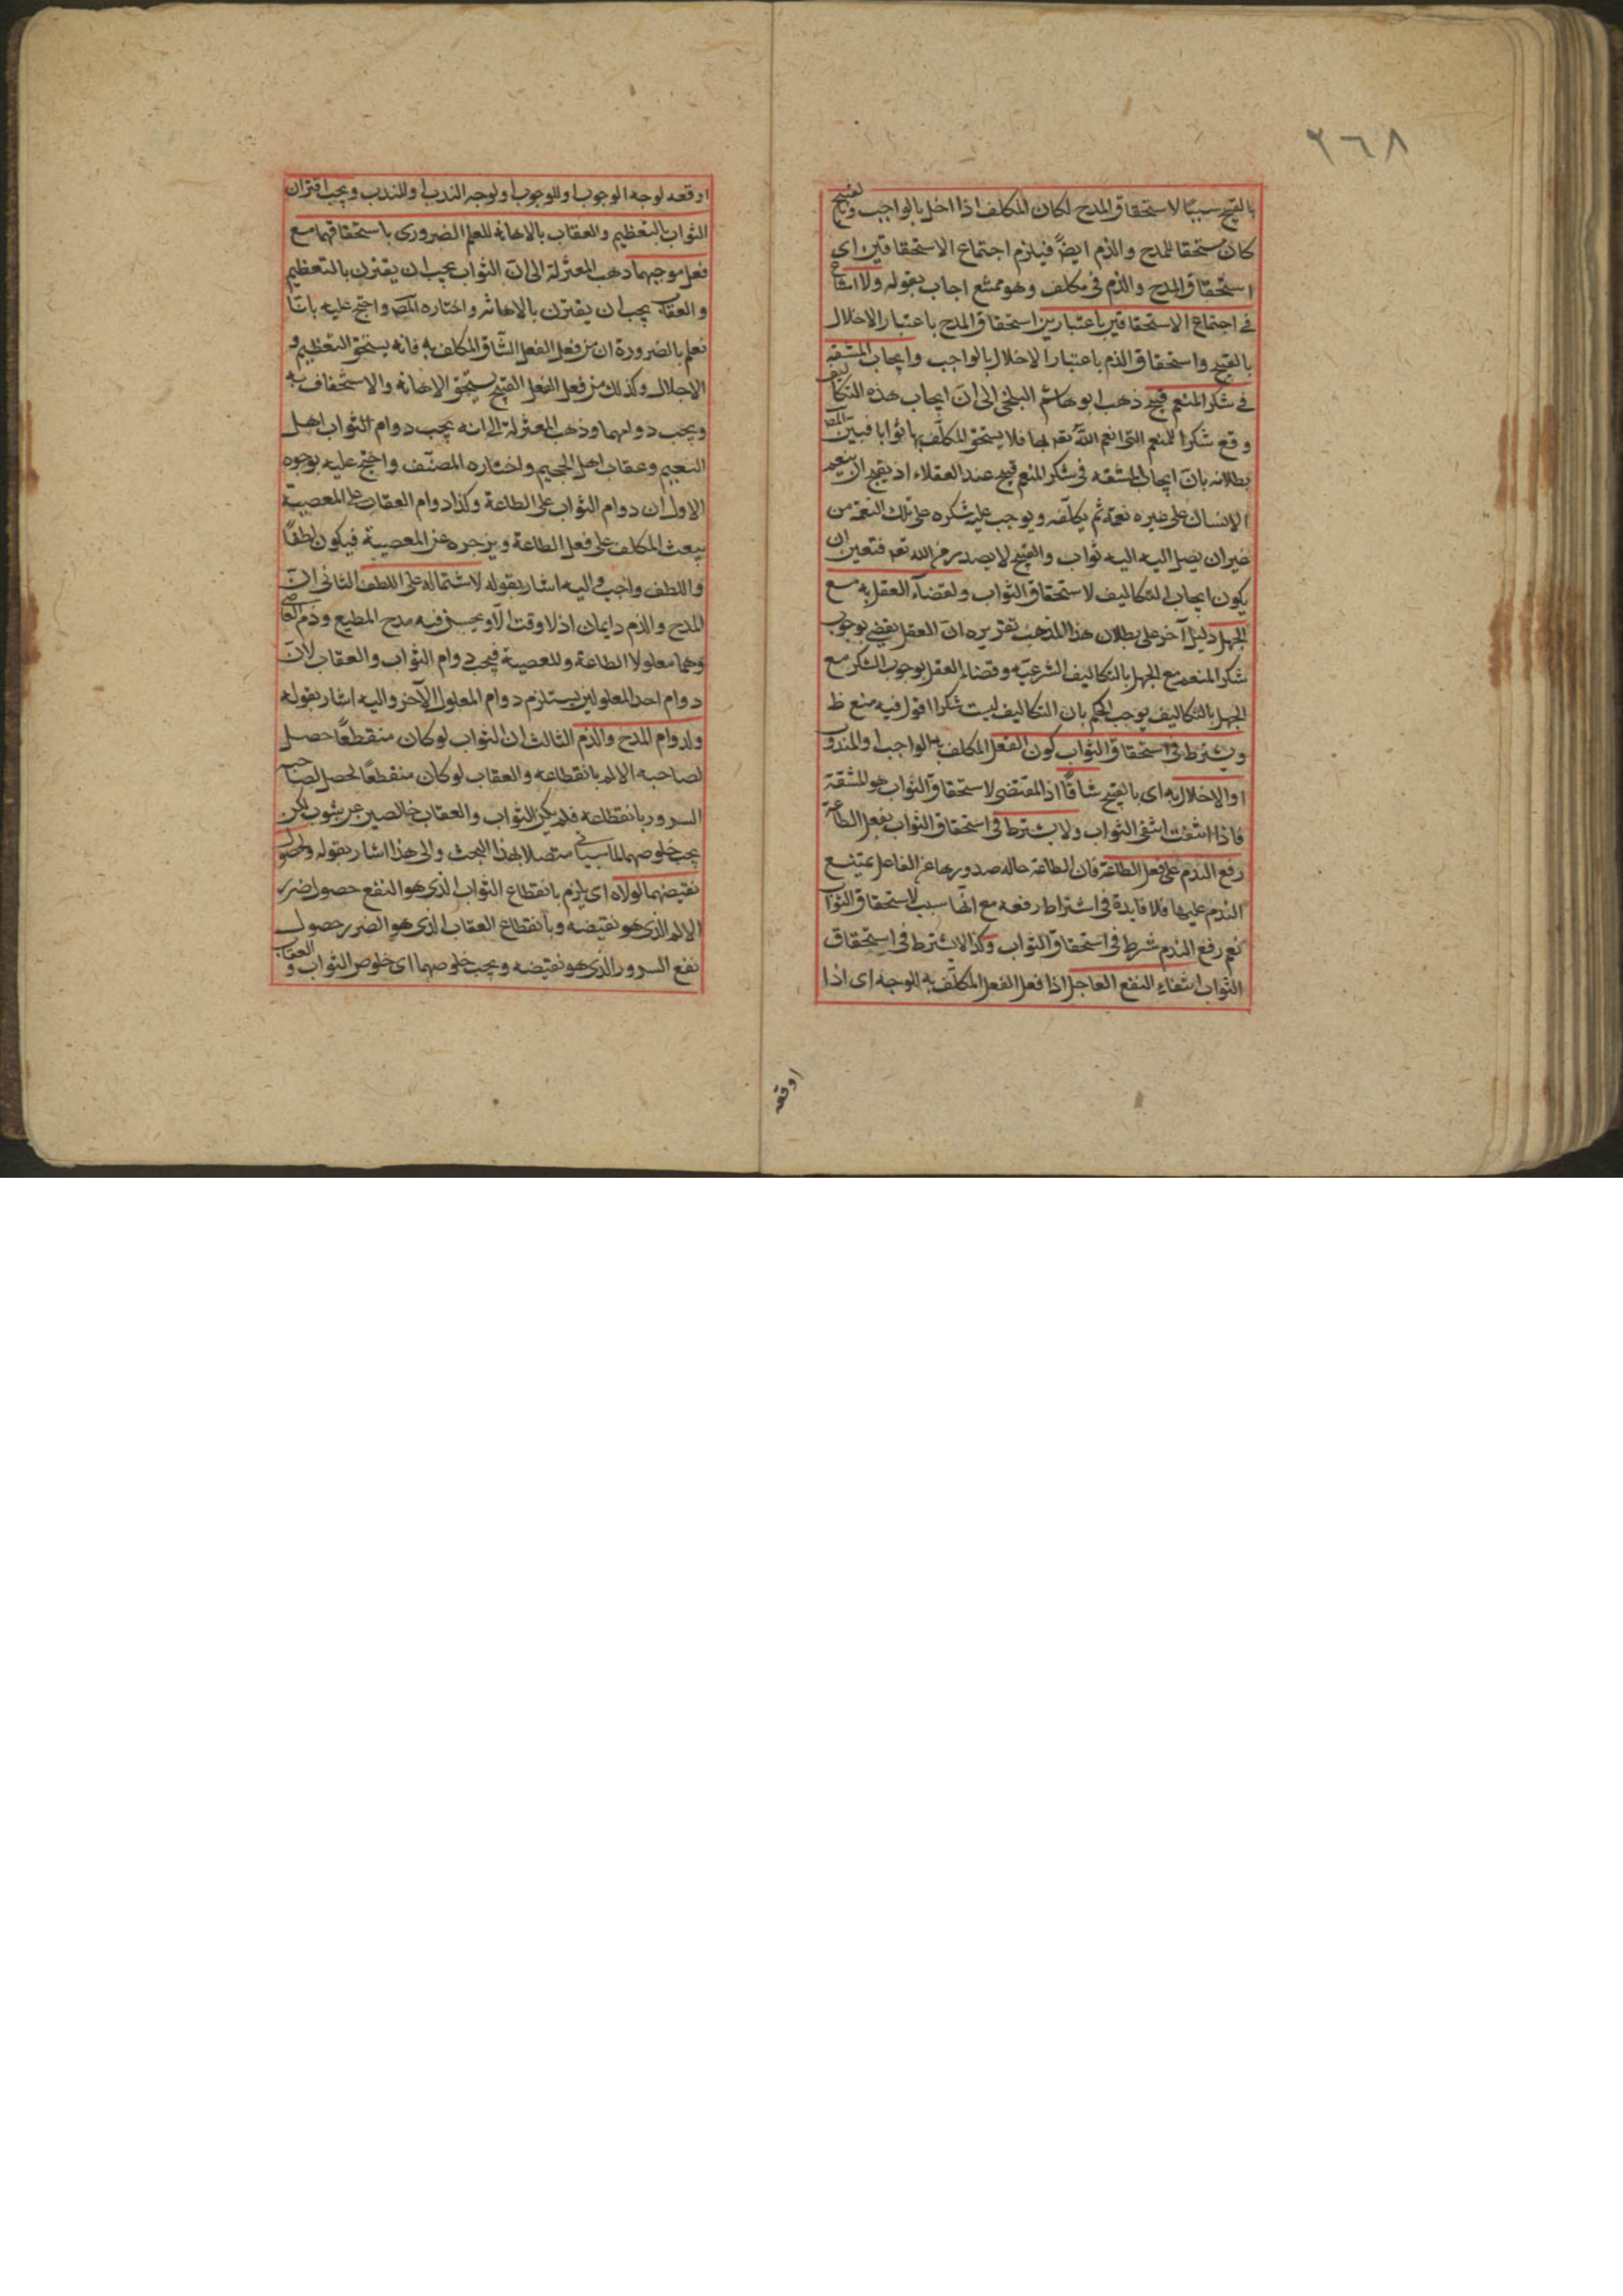 ٢٦٨
بالقبيح سببًا لاستحقاق المدح لكان المكلف اذا اخل بالواجب والقبيح
كان مستحقا للمدح والذم ايضًا فيلزم اجتماع الاستحقاقين اى
استحقاق المدح والذم فى مكلف وهو ممتنع اجاب بقوله ولا امتناع
فى اجتماع الاستحقاقين باعتبارين استحقاق المدح باعتبار الاخلال
بالقبيح واستحقاق الذم باعتبار الاخلال بالواجب وايجاب المشقة
فى شكر المنعم قبيح ذهب ابو هاشم البلخى الى ان ايجاب هذه التكاليف
وقع شكرا للمنعم التى انعم الله تعر بها فلا يستحق المكلف بها ثوابا فبين المصر
بطلانه بان ايجاب المشقه فى شكر المنعم قبيح عند العقلاء اذ يقبح ان ينعم
الانسان على غيره نعمة ثم يكلفه ويوجب عليه شكره على تلك النعمة من
غير ان يصل اليه اليه ثواب والقبيح لا يصدر من الله تعر فتعين ان
يكون ايجاب التكاليف لاستحقاق الثواب ولقضآء العقل به مع
الجهل دليل آخر على بطلان هذا المذهب تقريره ان العقل يقضى بوجوب
شكر المنعم مع الجهل بالتكاليف الشرعيه وقضاء العقل بوجوب الشكر مع
الجهل بالتكاليف يوجب الحكم بان التكاليف ليست شكرا اقول فيه منع ظ
ويشترط فى استحقاق الثواب كون الفعل المكلف به الواجب او المندوب
او الاخلال به اى بالقبيح شاقًا اذ المقتضى لاستحقاق الثواب هو المشقة
فاذا انتفت انتفى الثواب ولا يشترط فى استحقاق الثواب بفعل الطاعة
رفع الندم على فعل الطاعة فان الطاعة حاله صدورها عن الفاعل يمتنع
الندم عليها فلا فايدة فى اشتراط رفعه مع انها سبب لاستحقاق الثواب
نعم رفع الندم شرط فى استحقاق الثواب وكذا لا يشترط فى استحقاق
الثواب انتفاء النفع العاجل اذا فعل الفعل المكلف به للوجه اى اذا
اوقعه
اوقعه لوجه الوجوب او للوجوب او لوجه الندب او للندب ويجب اقتران
الثواب بالتعظيم والعقاب بالاهانه للعلم الضرورى باستحقاقهما مع
فعل موجبهما ذهب المعتزلة الى ان الثواب يجب ان يقترن بالتعظيم
والعقاب يجب ان يقترن بالاهانة واختاره المصر واحتج عليه بانا
نعلم بالضرورة ان من فعل الفعل الشاق المكلف به فانه يستحق التعظيم و
الاجلال وكذلك من فعل الفعل القبيح يستحق الاهانه والاستخفاف به
ويجب دوامهما وذهب المعتزلة الى انه يجب دوام الثواب اهل
النعيم وعقاب اهل الجحيم واختاره المصنف واحتج عليه بوجوه
الاول ان دوام الثواب على الطاعة وكذا دوام العقاب على المعصية
يبعث المكلف على فعل الطاعة ويزجره عن المعصية فيكون لطفًا
واللطف واجب واليه اشار بقوله لاشتماله على اللطف الثانى ان
المدح والذم دايمان اذ لا وقت الا ويحسن فيه مدح المطيع وذم العاصى
وهما معلولا الطاعة وللعصية فيجب دوام الثواب والعقاب لان
دوام احد المعلولين يستلزم دوام المعلول الآخر واليه اشار بقوله
ولدوام المدح والذم الثالث ان لثواب لو كان منقطعًا حصل
لصاحبه الالم بانقطاعه والعقاب لو كان منقطعًا لحصل لصاحبه
السرور بانقطاعه فلم يكن الثواب والعقاب خالصين عن شوب لكن
يجب خلوصهما لما سياتى متصلا بهذا البحث والى هذا اشار بقوله ولحصول
نقيضهما لولاه اى يلزم بانقطاع الثواب الذى هو النفع حصول ضرر
الالم الذى هو نقيضه وبانقطاع العقاب الذى هو الضرر حصول
نفع السرور الذى هو نقيضه ويجب خلوصهما اى خلوص الثواب و العقاب